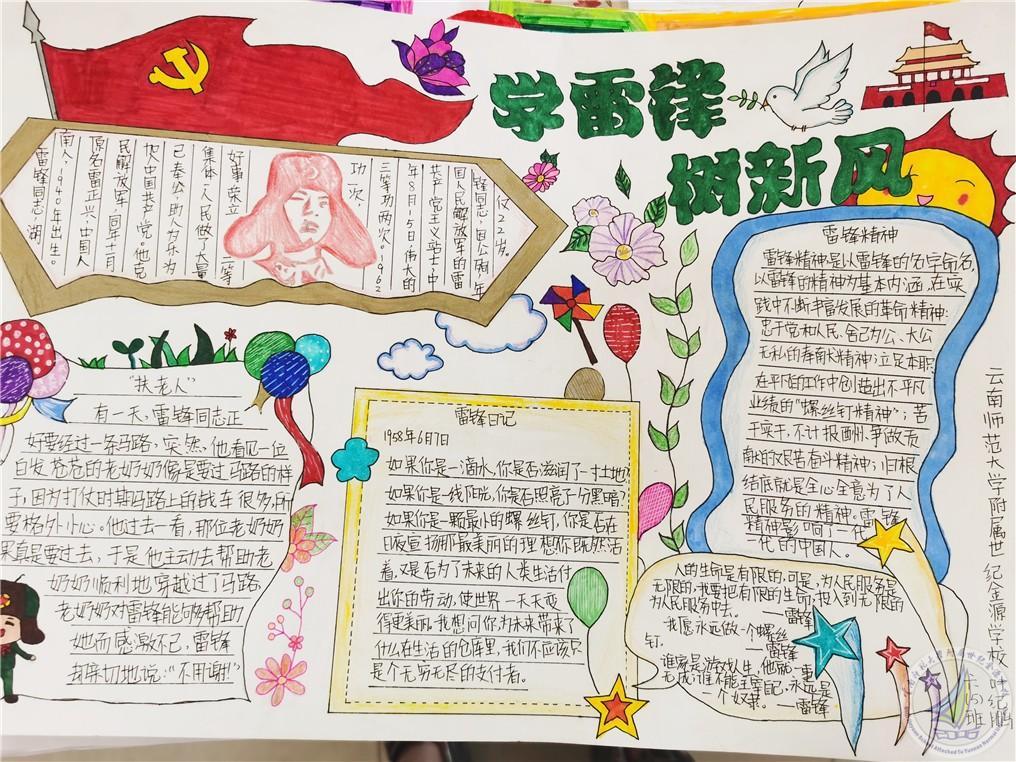 学雷锋
树新风
雷锋同志，湖
南人，1940年出生。
原名雷正兴，中国人
民解放军，同年十一月
加入中国共产党。他克
己奉公，助人为乐为
集体、人民做了大量
好事，荣立二等
功一次，
三等功两次。1962
年8月15日，伟大的
共产党主义战士、中
国人民解放军的雷
锋同志，因公殉
仅22岁。
“扶老人”
有一天，雷锋同志正
好要经过一条马路，突然，他看见一位
白发苍苍的老奶奶像是要过马路的样
子，因为打仗时其马路上的战车很多，所
要格外小心。他过去一看，那位老奶奶
果真是要过去，于是他主动去帮助老
奶奶顺利地穿越过了马路，
老奶奶对雷锋能够帮助
她而感激不已，雷锋
却亲切地说：“不用谢！”
雷锋日记
1958年6月7日
如果你是一滴水，你是否滋润了一寸土地？
如果你是一线阳光，你是否照亮了一分黑暗？
如果你是一颗最小的螺丝钉，你是否在
日夜宣扬那最美丽的理想你既然活
着，又是否为了未来的人类生活付
出你的劳动，使世界一天天变
得更美丽，我想问你，为未来带来了
什么在生活的仓库里，我们不应该只
是个无穷无尽的支付者。
雷锋精神
雷锋精神是以雷锋的名字命名，
以雷锋的精神为基本内涵，在实
践中不断丰富发展的革命精神：
忠于党和人民、舍己为公、大公
无私的奉献精神；立足本职、
在平凡的工作中创造出不平凡
业绩的“螺丝钉精神”；苦
于实干、不计报酬、争做贡
献的艰苦奋斗精神；归根
结底就是全心全意为了人
民服务的精神。雷锋
精神影响了一代一
代的中国人。
人的生命是有限的，可是，为人民服务是
无限的，我要把有限的生命，投入到无限的
为人民服务中去。——雷锋
我愿永远做一个螺丝
钉。——雷锋
谁家是游戏人生，他就一事
无成，谁不能主宰自己，永远是
一个奴隶。——雷锋
云南师范大学附属世纪金源学校